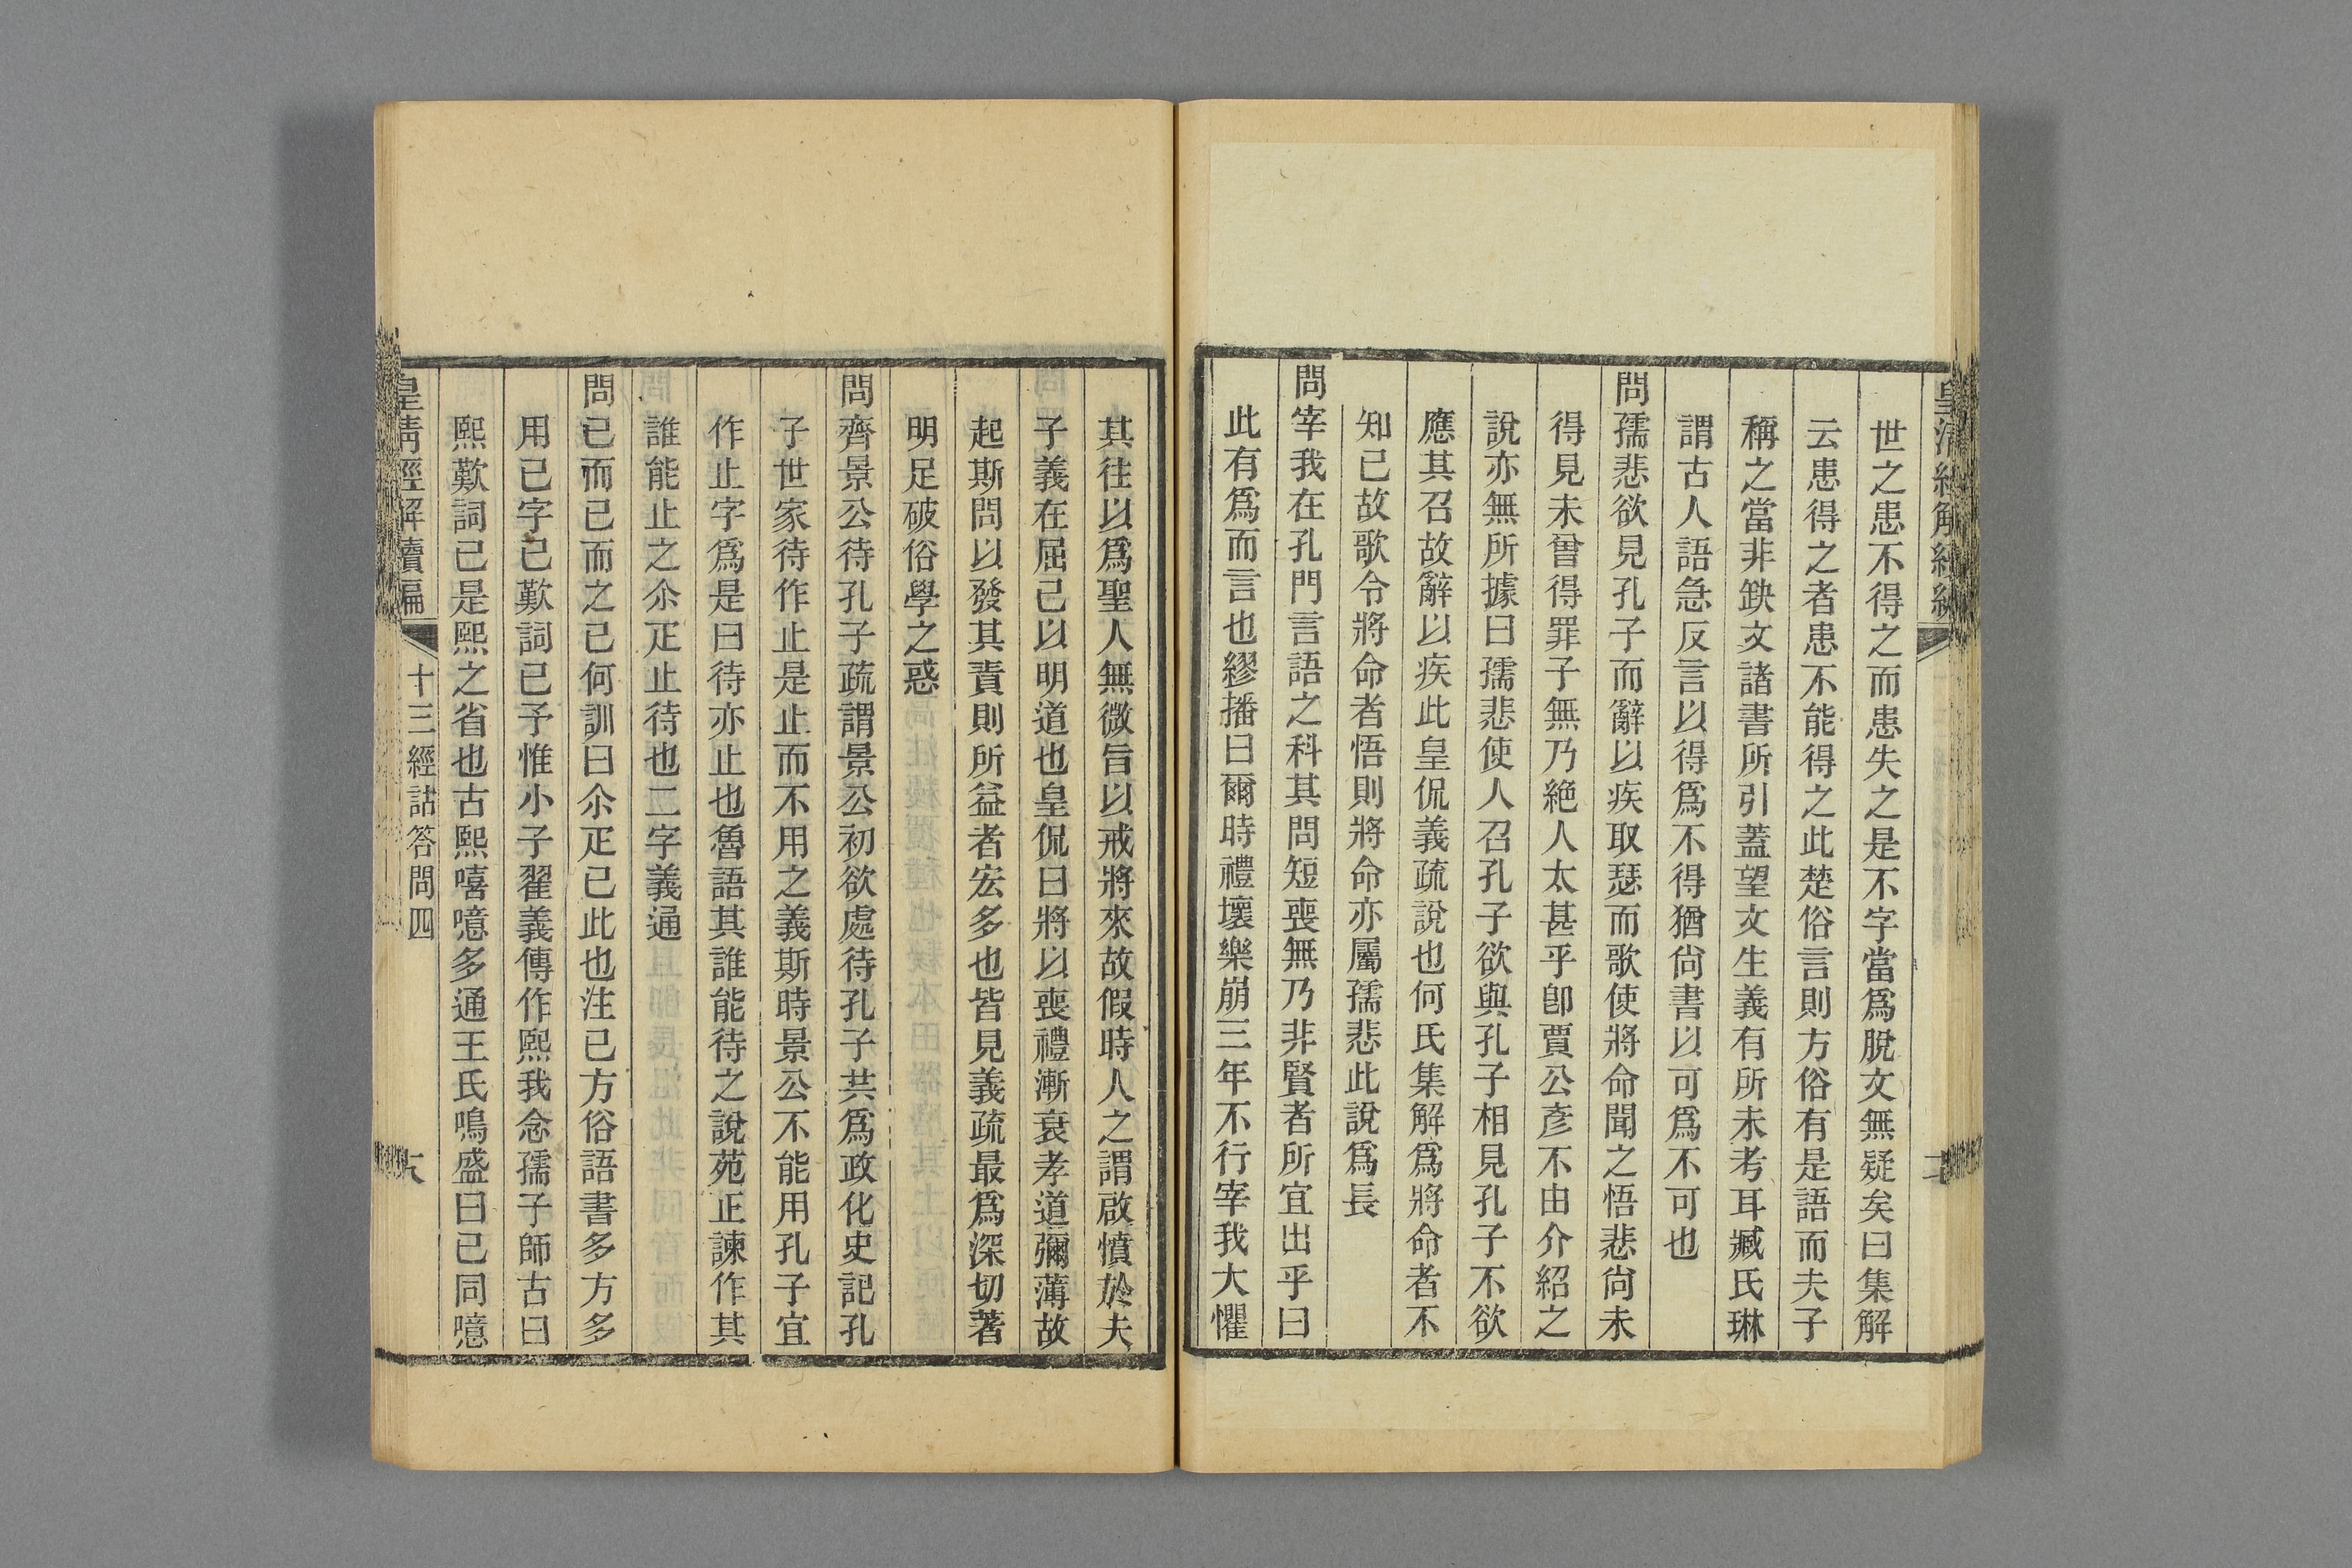 世之患不得之而患失之是不字當爲脫文無疑矣曰集解
云患得之者患不能得之此楚俗言則方俗有是語而夫子
稱之當非鈌文諸書所引蓋望文生義有所未考耳臧氏琳
謂古人語急反言以得爲不得猶尙書以可爲不可也
問孺悲欲見孔子而辭以疾取瑟而歌使將命聞之悟悲尙未
得見未曾得罪子無乃絕人太甚乎卽賈公彥不由介紹之
說亦無所據曰孺悲使人召孔子欲與孔子相見孔子不欲
應其召故辭以疾此皇侃義疏說也何氏集解爲將命者不
知已故歌令將命者悟則將命亦屬孺悲此說爲長
問宰我在孔門言語之科其問短喪無乃非賢者所宜出乎曰
此有爲而言也繆播曰爾時禮壞樂崩三年不行宰我大懼
其往以爲聖人無微旨以戒將來故假時人之謂啟憤於夫
子義在屈己以明道也皇侃曰將以喪禮漸衰孝道彌薄故
起斯問以發其責則所益者宏多也皆見義疏最爲深切著
明足破俗學之惑
問齊景公待孔子疏謂景公初欲處待孔子共爲政化史記孔
子世家待作止是止而不用之義斯時景公不能用孔子宜
作止字爲是曰待亦止也魯語其誰能待之說苑正諫作其
誰能止之尒疋止待也二字義通
問已而已而之已何訓曰尒疋已此也注已方俗語書多方多
用已字已歎詞已予惟小子翟義傳作熙我念孺子師古曰
熙歎詞已是熙之省也古熙嘻噫多通王氏鳴盛曰已同噫
皇清經解續編
十三經詁答問四